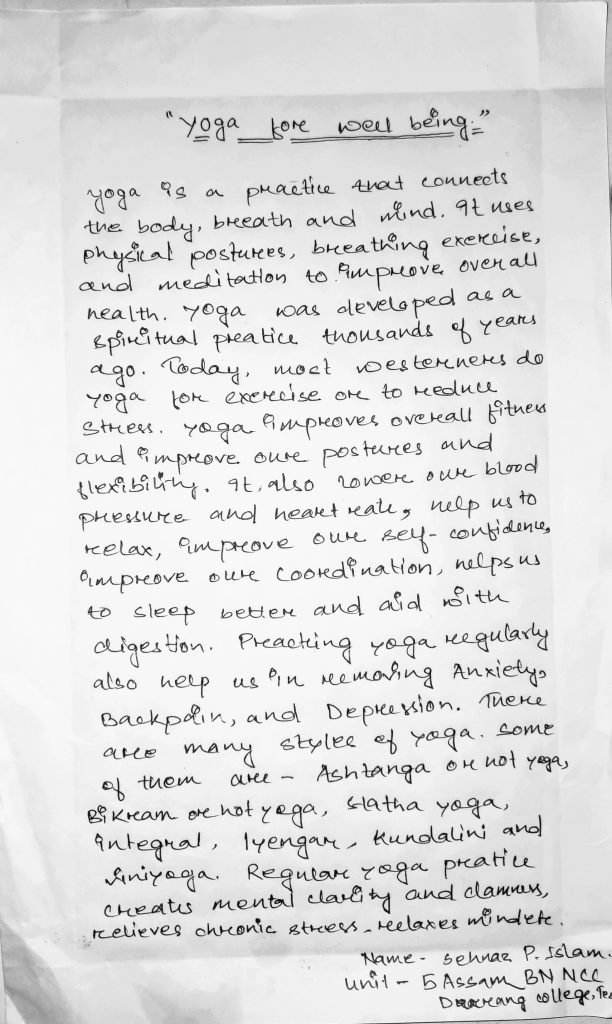 "Yoga fore well being."
Yoga is a practice that connects
the body, breeath and mind. It uses
physical posturees, breathing exercise,
and meditation to improve overall
health. Yoga was developed as a
spiritual preatice thousands of years
ago. Today, most westerners do
yoga for exercise or to reduce
stress. Yoga improves overall fitness
and improve oure postures and
flexibility. It, also lower our blood
pressure and heart reate, help us to
relax, improve our self-confidence,
improve oure coordination, helps us
to sleep better and aid with
digestion. Preacting yoga regularly
also help us in removing Anxiety,
Backpain, and Depression. There
are many styles of yoga. Some
of them are - Ashtanga or hot yoga,
Bikram or hot yoga, Hatha yoga,
integral, Iyengar, Kundalini and
Viniyoga. Regular yoga preatice
creates mental clarity and clamness,
relieves chronic stress, relaxes mind etc.
Name - Sehnaz P. Islam.
Unit - 5 Assam BN NCC
Darrang college, Tez